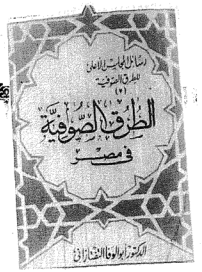 رسائل المجلس الأعلى
للطرق الصوفية
(٢)
الطرق الصوفية
في مصر
الدكتور أبو الوفا التفتازاني